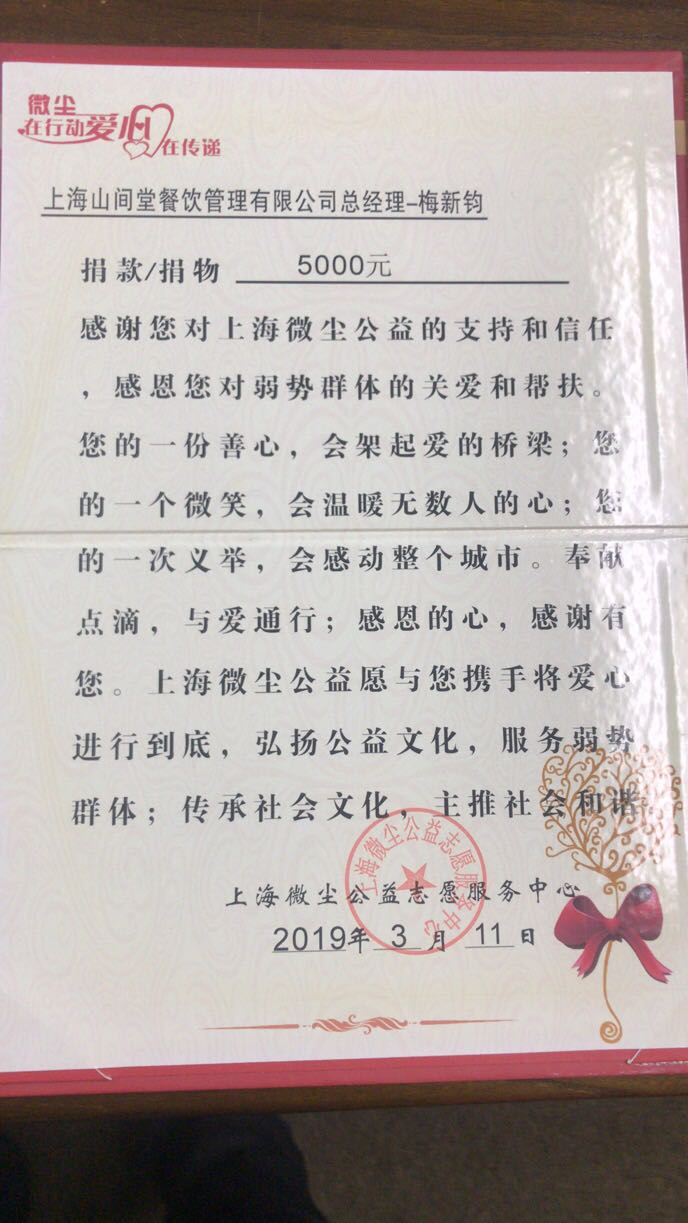 微尘
在行动爱心在传递
上海山间堂餐饮管理有限公司总经理-梅新钧
捐款/捐物 5000元
感谢您对上海微尘公益的支持和信任
，感恩您对弱势群体的关爱和帮扶。
您的一份善心，会架起爱的桥梁；您
的一个微笑，会温暖无数人的心；您
的一次义举，会感动整个城市。奉献
点滴，与爱通行；感恩的心，感谢有
您。上海微尘公益愿与您携手将爱心
进行到底，弘扬公益文化，服务弱势
群体；传承社会文化，主推社会和谐
上海微尘公益志愿服务中心
上海微尘公益志愿服务中心
2019年 3 月 11 日